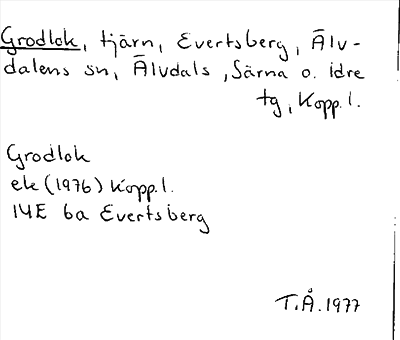 Grodlok, tjärn, Evertsberg, Älv-
dalens sn, Älvdals, Särna o. idre
tg, Kopp.l.
Grodlok
ek (1976) Kopp.l.
14E 6a Evertsberg
T.Å. 1977